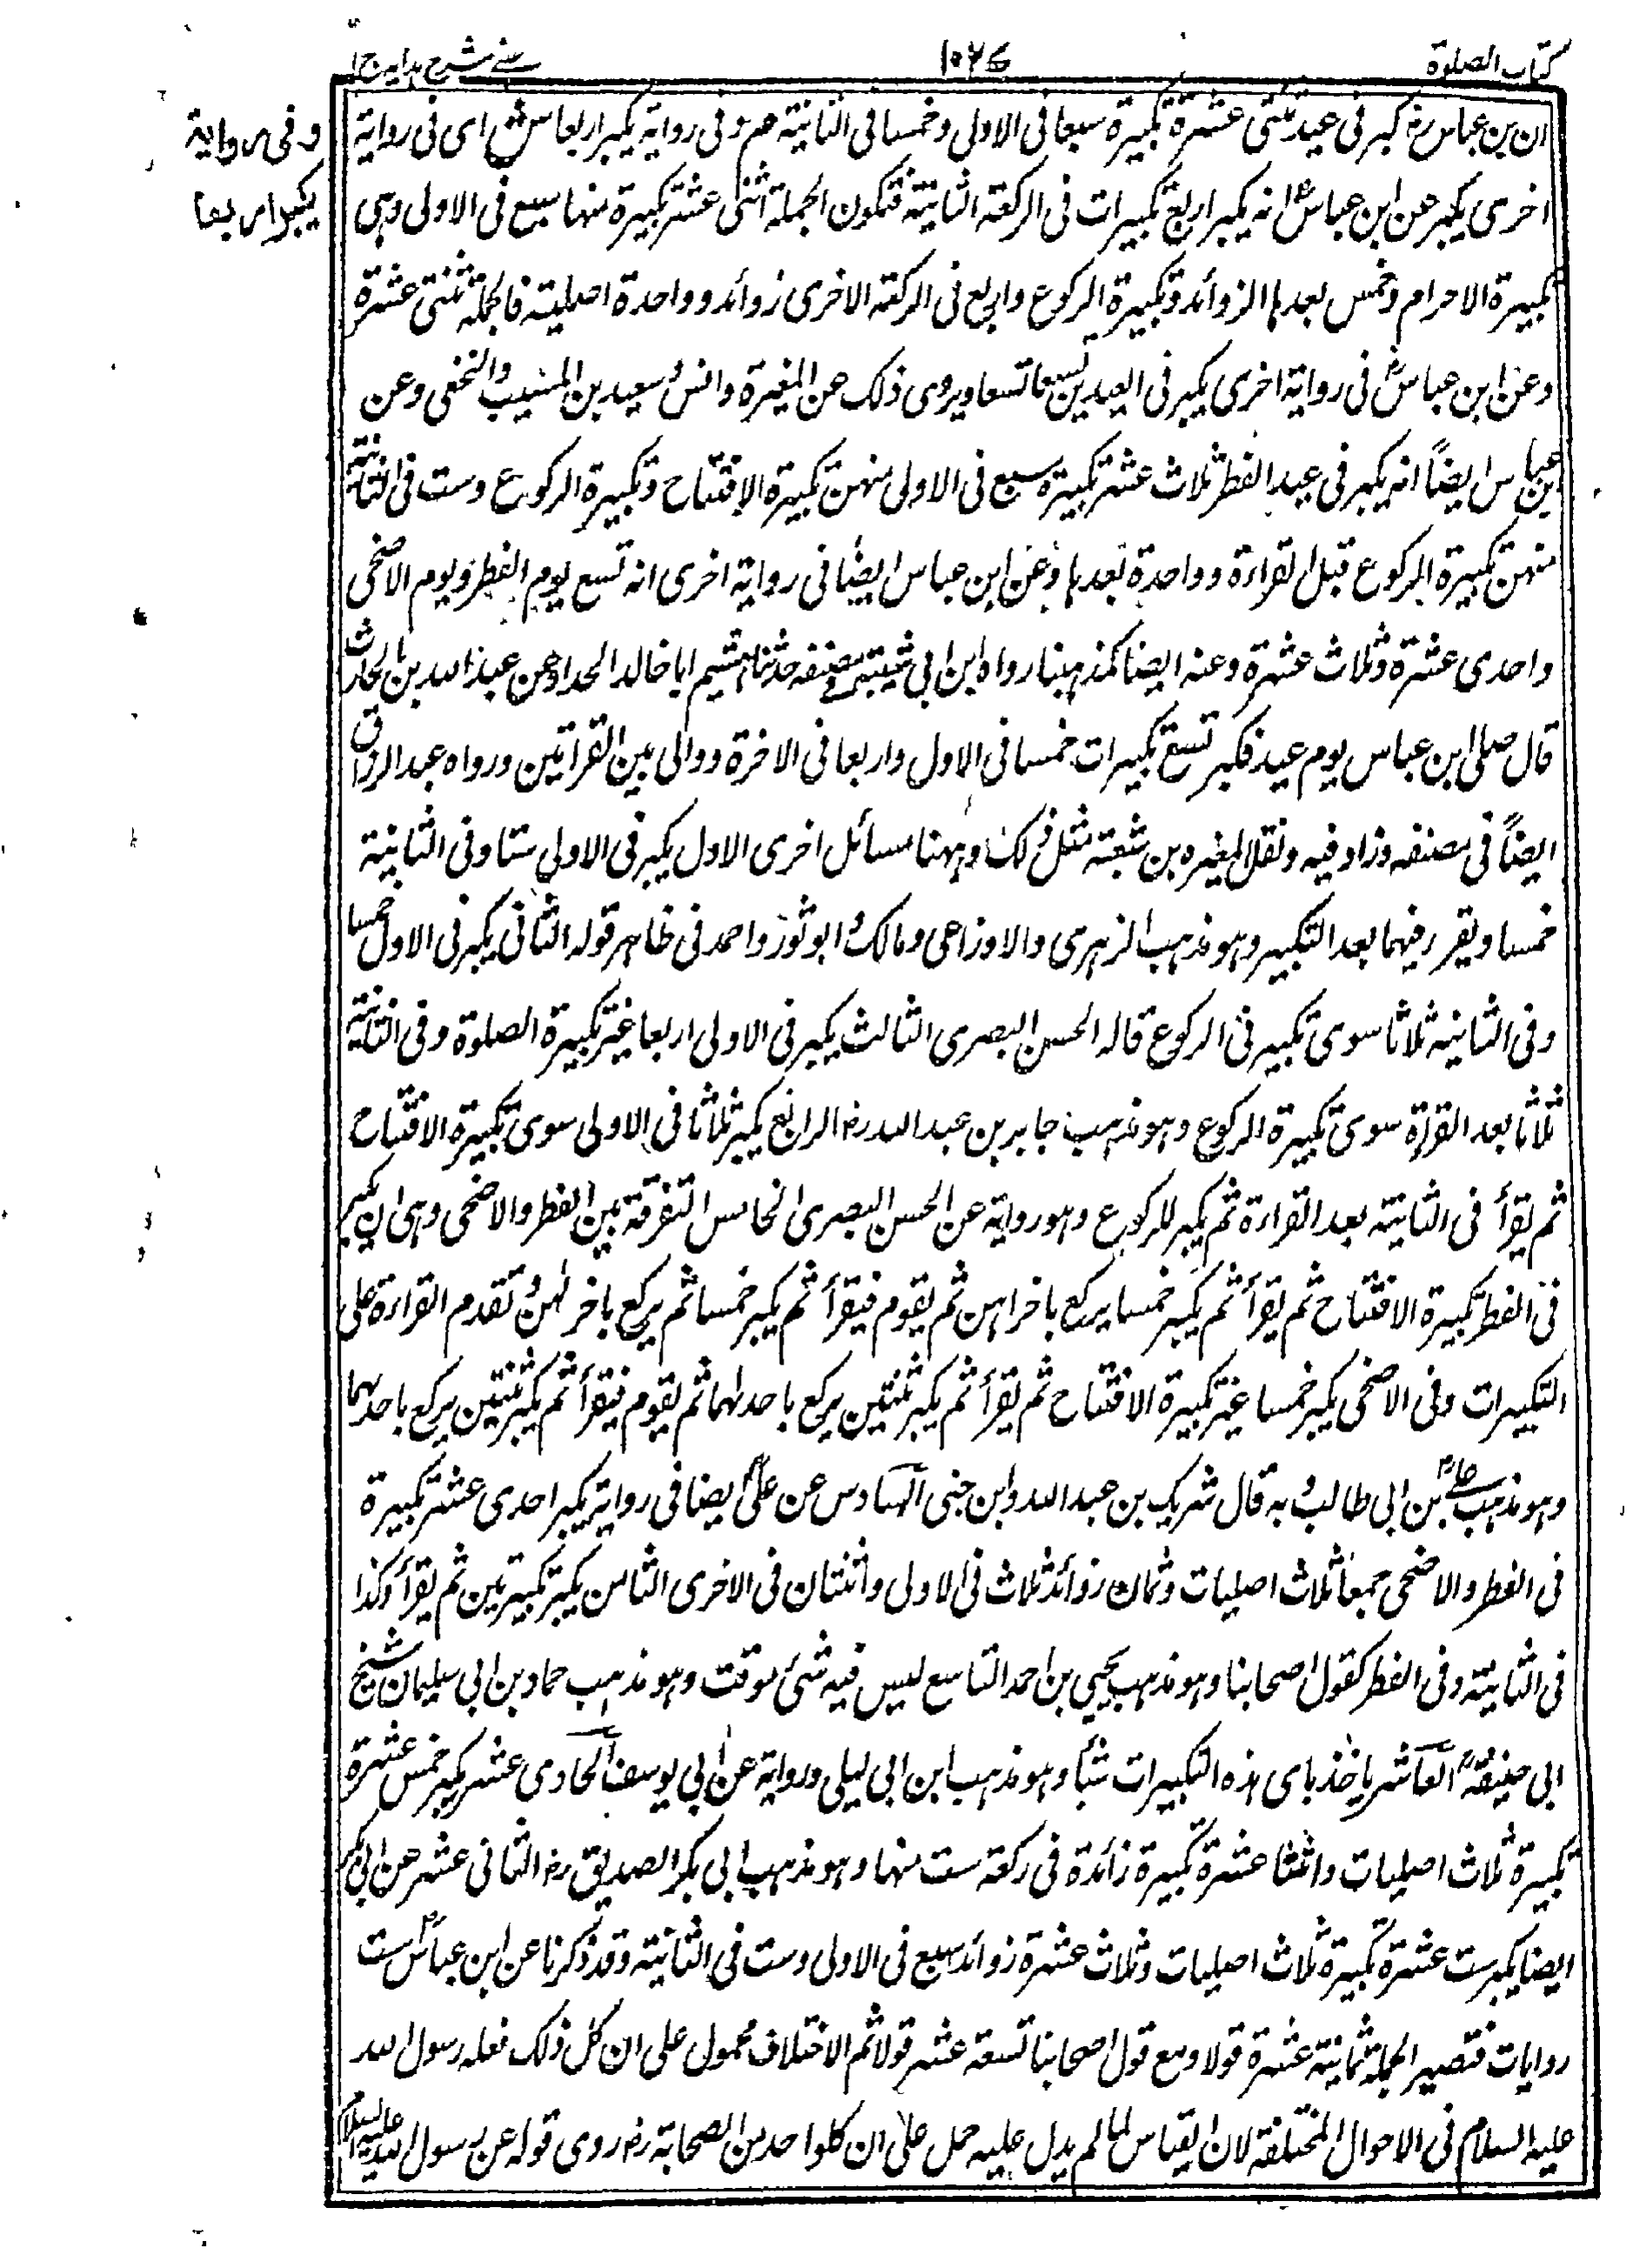 كتاب الصلوة
۱۰۲۶
عينى شرح هدايه ج ۱
وفى رواية
يكبر اربعا
ان بن عباس رض كبر فى عيد ثنتى عشرة تكبيرة سبعا فى الاولى وخمسا فى الثانية هم وفى رواية يكبر اربعا ش اى فى رواية
اخرى يكبر عن ابن عباس رض انه يكبر اربع تكبيرات فى الركعة الثانية فتكون الجملة اثنى عشر تكبيرة منها سبع فى الاولى وهى
تكبيرة الاحرام وخمس بعدها الزوائد وتكبيرة الركوع واربع فى الركعة الاخرى زوائد وواحدة اصلية فالجملة ثنتى عشرة
وعن ابن عباس رض فى رواية اخرى يكبر فى العيدين تسعا تسعا ويروى ذلك عن المغيرة وانس وسعيد بن المسيب والنخعى وعن
ابن عباس ايضاً انه يكبر فى عيد الفطر ثلاث عشر تكبيرة سبع فى الاولى منهن تكبيرة الافتتاح وتكبيرة الركوع وست فى الثانية
منهن تكبيرة الركوع قبل القراءة وواحدة بعدها وعن ابن عباس ايضا فى رواية اخرى انه تسع يوم الفطر ويوم الاضحى
واحدى عشرة وثلاث عشرة وعنه ايضا كمذهبنا رواه ابن ابى شيبة فى مصنفه حدثنا هشيم انا خالد الحداء عن عبد الله بن الحارث
قال صلى ابن عباس يوم عيد فكبر تسع تكبيرات خمسا فى الاول واربعا فى الاخرة ووالى بين القراتين ورواه عبد الرزاق
ايضاً فى مصنفه وزاد فيه ونقل المغيره بن شعبة مثل ذلك وههنا مسائل اخرى الاول يكبر فى الاولى ستا وفى الثانية
خمسا ويقر رفيهما بعد التكبير وهو مذهب الزهرى والاوزاعى ومالك وابو ثور واحمد فى ظاهر قوله الثانى يكبر فى الاول خمسا
وفى الثانيه ثلاثا سوى تكبير فى الركوع قاله الحسن البصرى الثالث يكبر فى الاولى اربعا غير تكبيرة الصلوة وفى الثانية
ثلاثا بعد القراة سوى تكبيرة الركوع وهو مذهب جابر بن عبد الله رض الرابع يكبر ثلاثا فى الاولى سوى تكبيرة الافتتاح
ثم يقرأ فى الثانية بعد القراءة ثم يكبر للركوع وهو رواية عن الحسن البصرى الخامس التفرقة بين الفطر والاضحى وهى ان يكبر
فى الفطر تكبيرة الافتتاح ثم يقرأ ثم يكبر خمسا يركع باخراهن ثم يقوم فيقرأ ثم يكبر خمسا ثم يركع باخرلهن وتقدم القراءة على
التكبيرات وفى الاضحى يكبر خمسا غير تكبيرة الافتتاح ثم يقرأ ثم يكبر ثنتين يركع باحدلهما ثم يقوم فيقرأ ثم يكبر ثنتين يركع باحدهما
وهو مذهب على بن ابى طالب وبه قال شريك بن عبد الله وابن جنى السادس عن على ايضا فى رواية يكبر احدى عشر تكبيرة
فى الفطر والاضحى جمعا ثلاث اصليات وثمان زوائد ثلاث فى الاولى واثنتان فى الاخرى الثامن يكبر تكبيرتين ثم يقرأ وكذا
فى الثانية وفى الفطر كقول اصحابنا وهو مذهب يحيى بن احمد التاسع ليس فيه شئ موقت وهو مذهب حماد بن ابى سليمان شيخ
ابى حنيفة رح العاشر ياخذ باى هذه التكبيرات شبأ وهو مذهب ابن ابى ليلى ورواية عن ابى يوسف الحادى عشر يكبر خمس عشرة
تكبيرة ثلاث اصليات واثنتا عشرة تكبيرة زائدة فى ركعة ست منها وهو مذهب ابى بكر الصديق رض الثانى عشر عن ابى بكر
ايضا يكبر ست عشرة تكبيرة ثلاث اصليات وثلاث عشرة زوائد سبع فى الاولى وست فى الثانية وقد ذكرنا عن ابن عباس رض ست
روايات فتصير الجملة ثمانية عشرة قولا ومع قول اصحابنا تسعة عشر قولا ثم الاختلاف محمول على ان كل ذلك فعله رسول الله
عليه السلام فى الاحوال المختلفة لان القياس لما لم يدل عليه حمل على ان كلوا حد من الصحابة رض روى قوله عن رسول الله عليه السلام